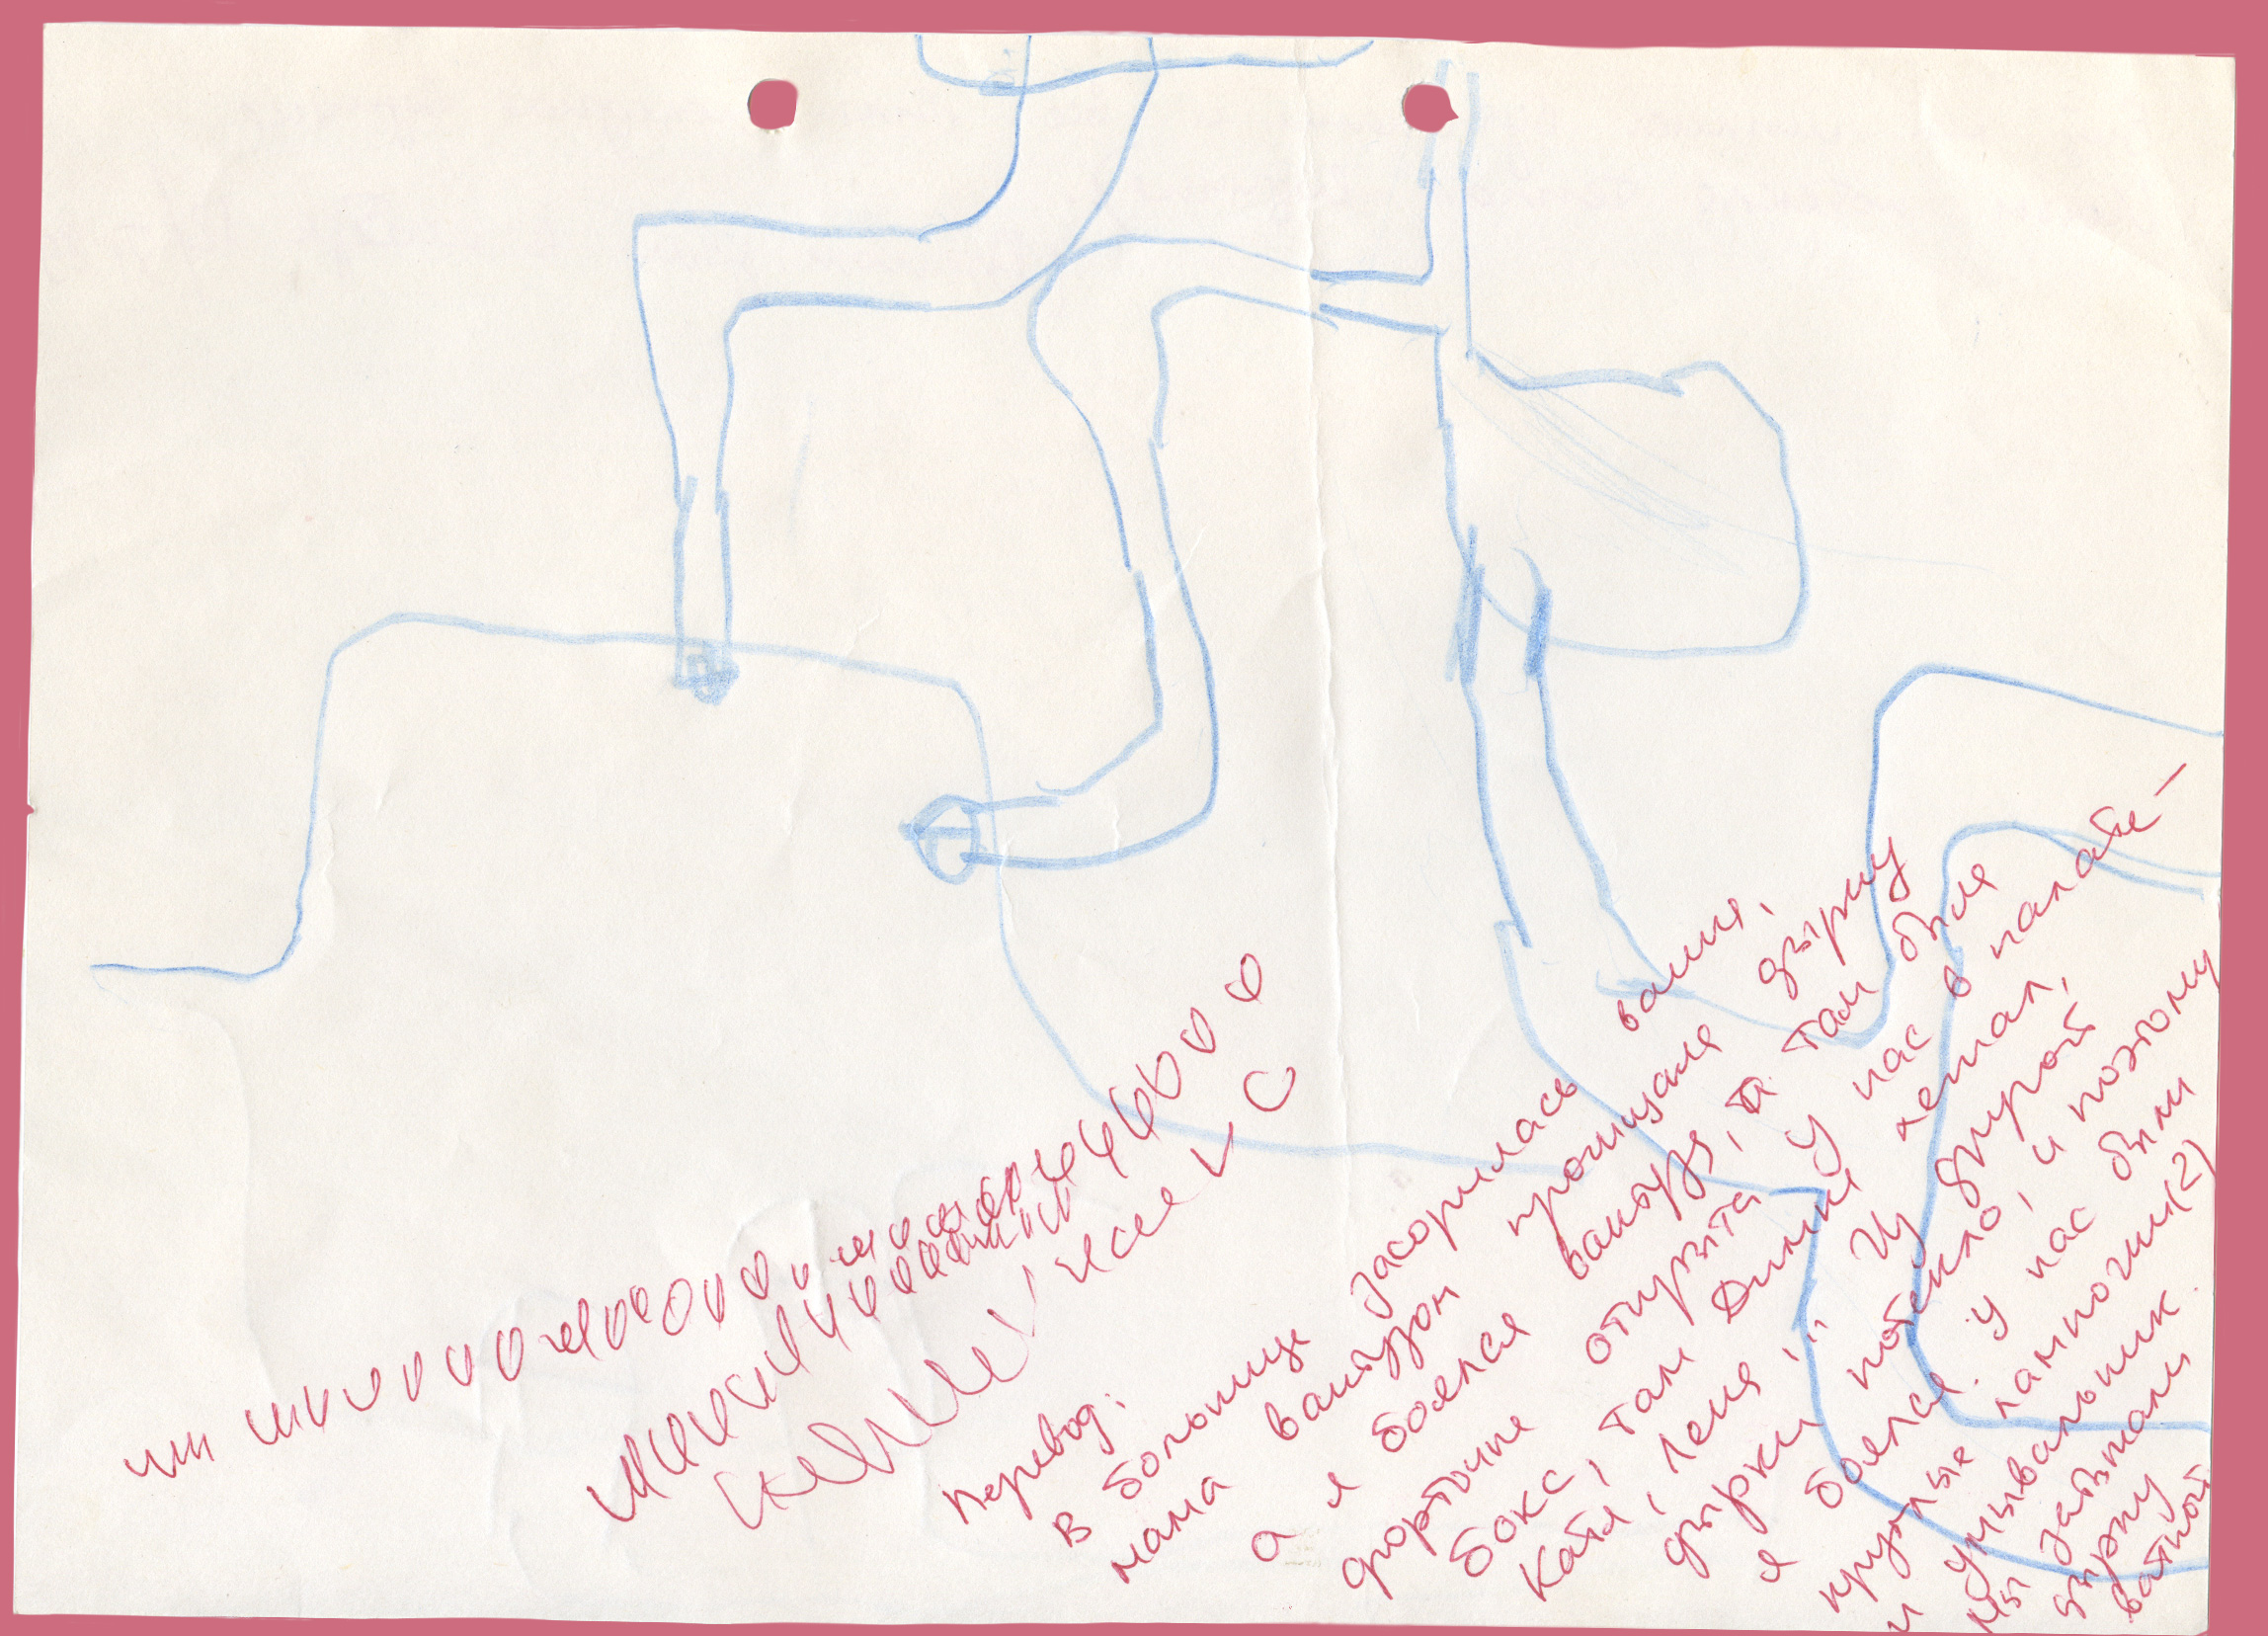 Перевод:
В больнице засорилась ванна,
мама вантузом прочищала дырку
а я боялся вантуза, та там была
форточка открыта у нас в палате –
бокс, там Димка лежал,
Катя, Лена, " Из другой
дырки потекло, и поэтому
я боялся. У нас были
круглые лампочки (2)
и умывальник.
Мы затыкали
дырку
ватной